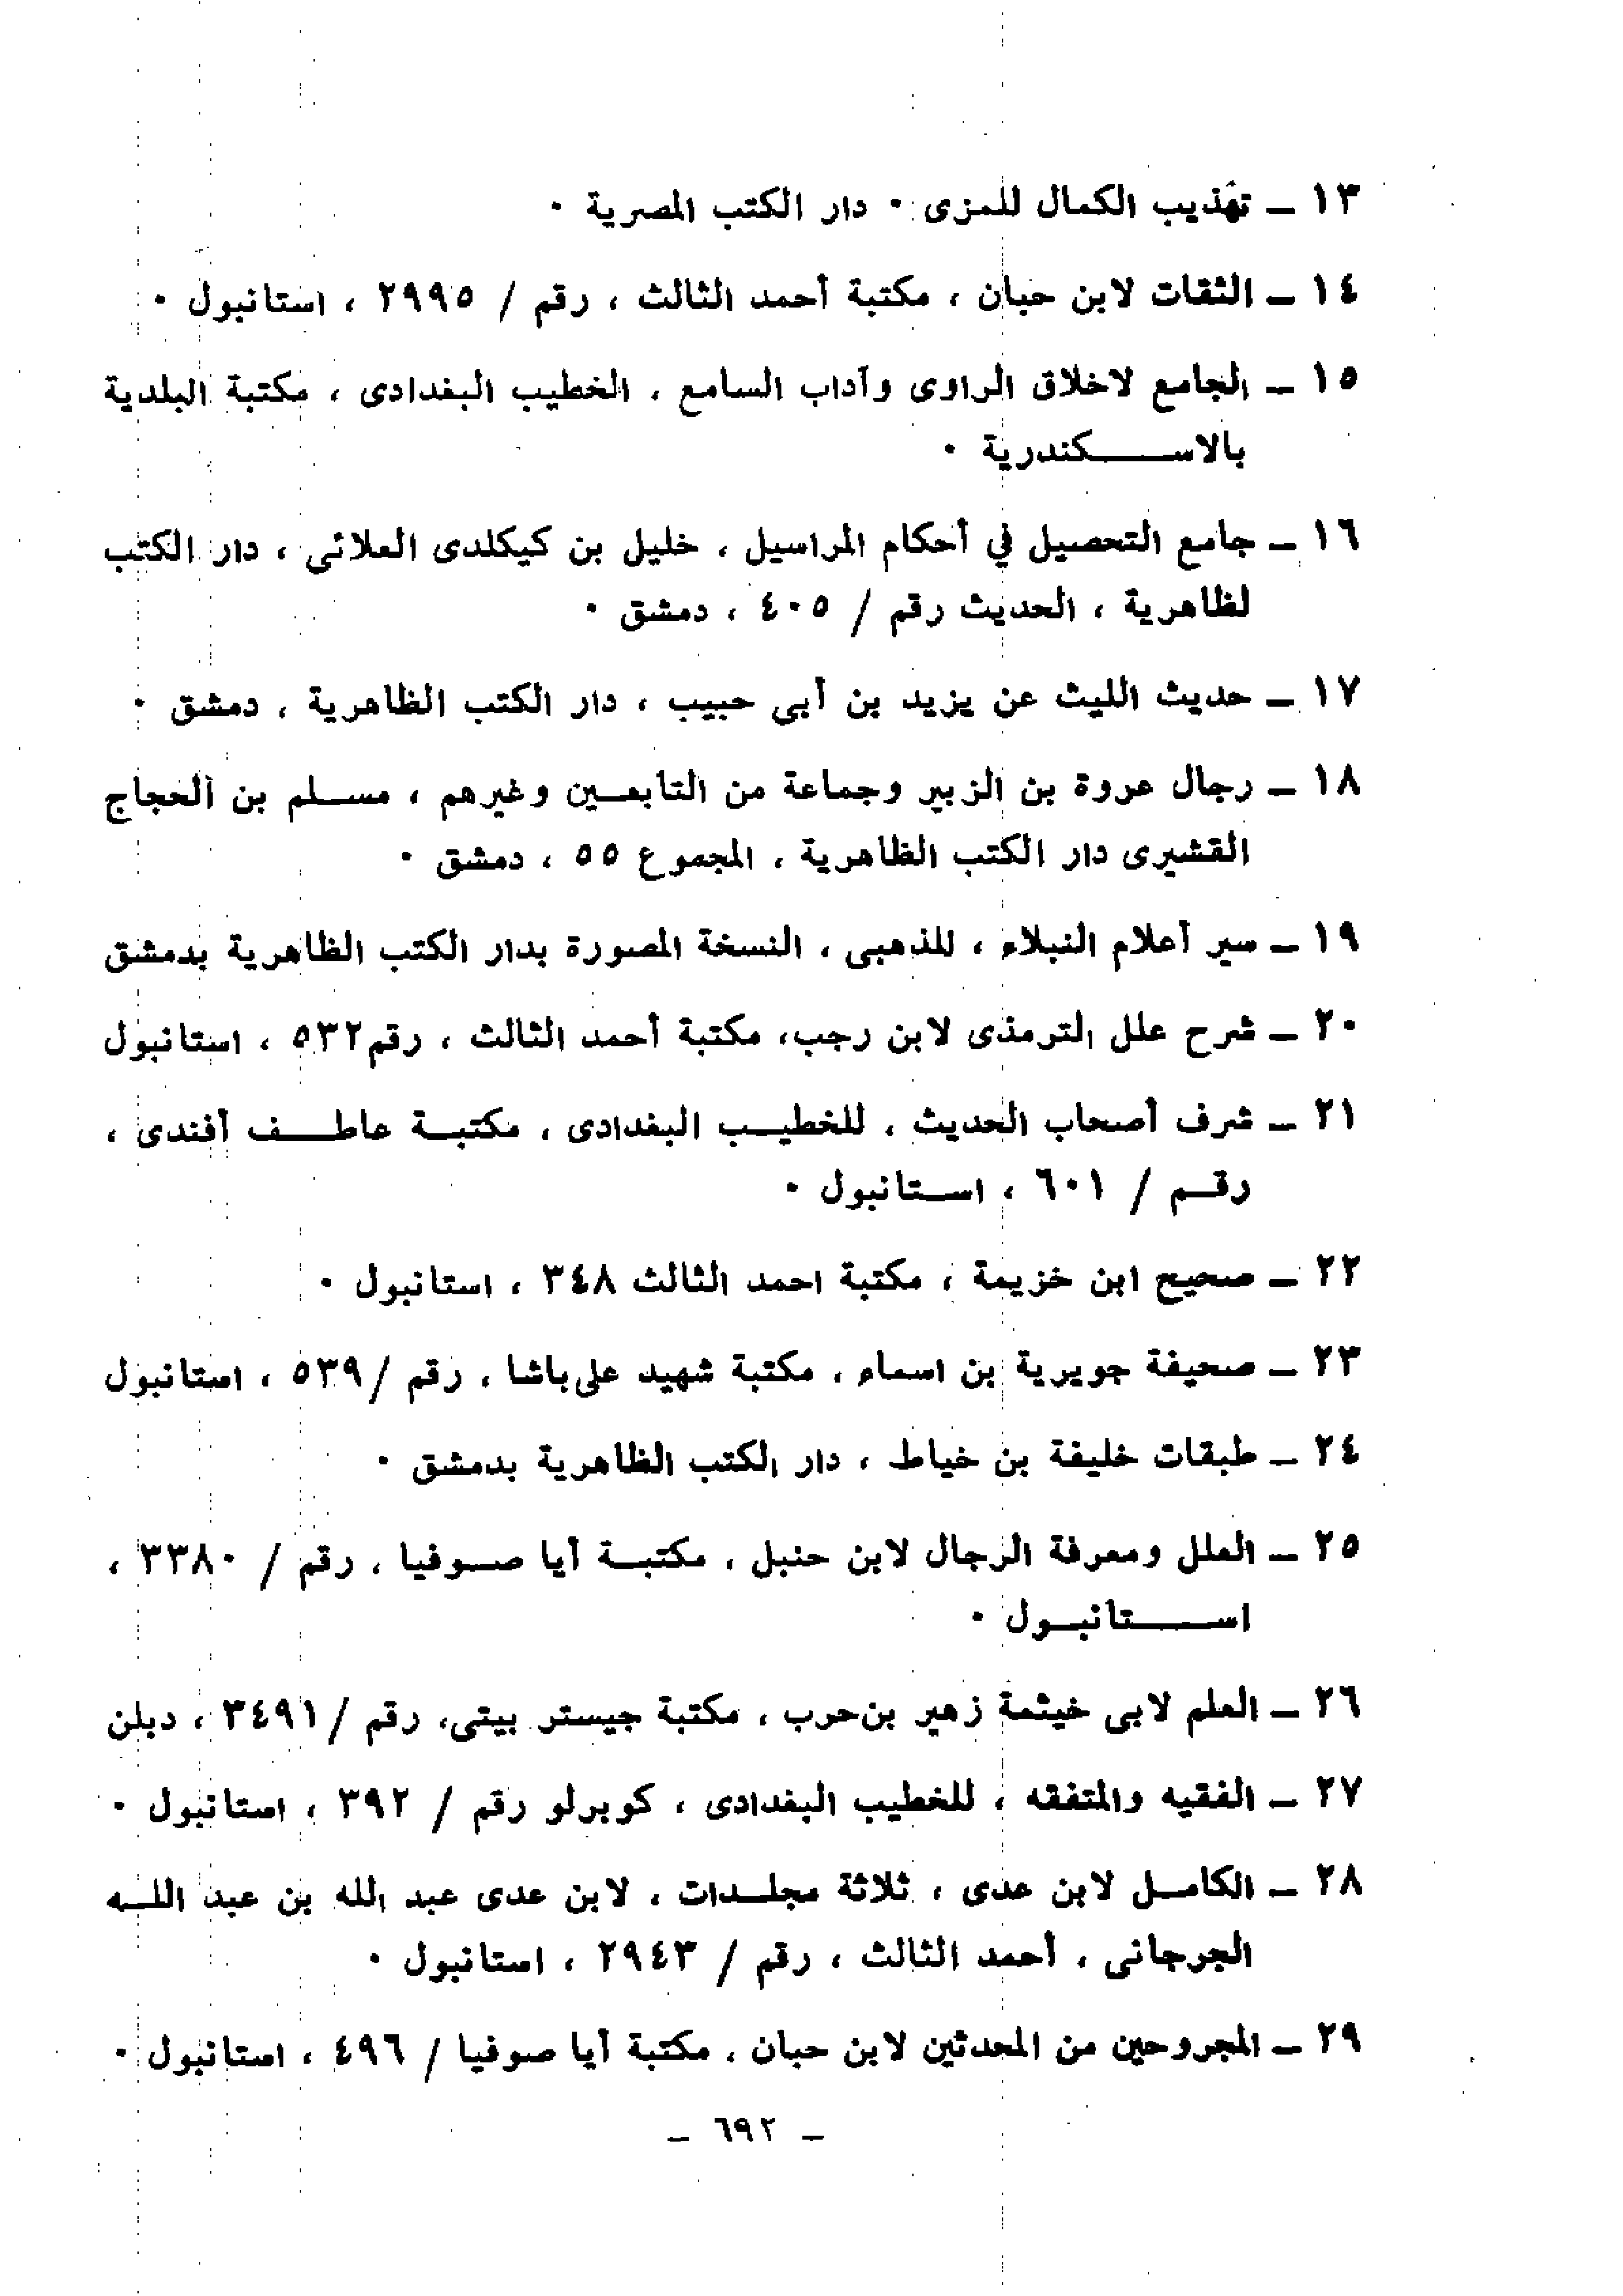 ١٣ ــ تهذيب الكمال للمزى ٠ دار الكتب المصرية ٠
١٤ ــ الثقات لابن حبان ، مكتبة أحمد الثالث ، رقم / ٢٩٩٥ ، استانبول ٠
١٥ ــ الجامع لاخلاق الراوى وآداب السامع ، الخطيب البغدادى ، مكتبة البلدية
بالاســـكندرية ٠
١٦ ــ جامع التحصيل في أحكام المراسيل ، خليل بن كيكلدى العلائى ، دار الكتب
لظاهرية ، الحديث رقم / ٤٠٥ ، دمشق ٠
١٧ ــ حديث الليث عن يزيد بن أبى حبيب ، دار الكتب الظاهرية ، دمشق ٠
١٨ ــ رجال عروة بن الزبير وجماعة من التابعـين وغيرهم ، مســلم بن الحجاج
القشيرى دار الكتب الظاهرية ، المجموع ٥٥ ، دمشق ٠
١٩ ــ سير أعلام النبلاء ، للذهبى ، النسخة المصورة بدار الكتب الظاهرية بدمشق
٢٠ ــ شرح علل الترمذى لابن رجب، مكتبة أحمد الثالث ، رقم٥٣٢ ، استانبول
٢١ ــ شرف أصحاب الحديث ، للخطيـب البغدادى ، مكتبـة عاطـف أفندى ،
رقـم / ٦٠١ ، اسـتانبول ٠
٢٢ ــ صحيح ابن خزيمة ، مكتبة احمد الثالث ٣٤٨ ، استانبول ٠
٢٣ ــ صحيفة جويرية بن اسماء ، مكتبة شهيد على‌باشا ، رقم /٥٣٩ ، استانبول
٢٤ ــ طبقات خليفة بن خياط ، دار الكتب الظاهرية بدمشق ٠
٢٥ ــ العلل ومعرفة الرجال لابن حنبل ، مكتبـة أيا صـوفيا ، رقم / ٣٣٨٠ ،
اســـتانبـول ٠
٢٦ ــ العلم لابى خيثمة زهير بن‌حرب ، مكتبة جيستر بيتى، رقم /٣٤٩١ ، دبلن
٢٧ ــ الفقيه والمتفقه ، للخطيب البغدادى ، كوبرلو رقم / ٣٩٢ ، استانبول ٠
٢٨ ــ الكامـل لابن عدى ، ثلاثة مجلـدات ، لابن عدى عبد الله بن عبد اللـه
الجرجانى ، أحمد الثالث ، رقم / ٢٩٤٣ ، استانبول ٠
٢٩ ــ المجروحين من المحدثين لابن حبان ، مكتبة أيا صوفيا / ٤٩٦ ، استانبول ٠
ــ ٦٩٢ ــ